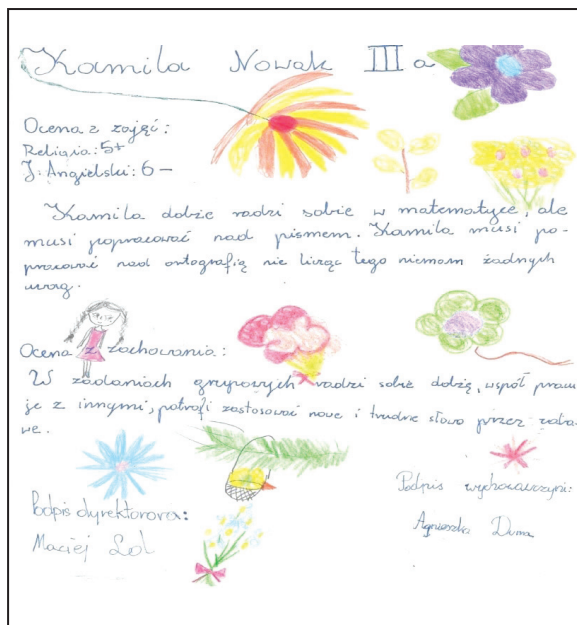 Kamila Nowak III a
Ocena z zajęć:
Religia: 5+
J. Angielski: 6-
Kamila dobże radzi sobie w matematyce, ale
musi popracować nad pismem. Kamila musi po-
pracować nad ortografią nie licząc tego niemam żadnych
uwag.
Ocena z zachowania:
W zadaniach grupowych radzi sobie dobżę, współ pracu
je z innymi, potrafi zastosować nowe i trudne słowa przez zaba-
we.
Podpis dyrektorora:
Maciej Lol
Podpis wychowawczyni:
Agnieszka Duma